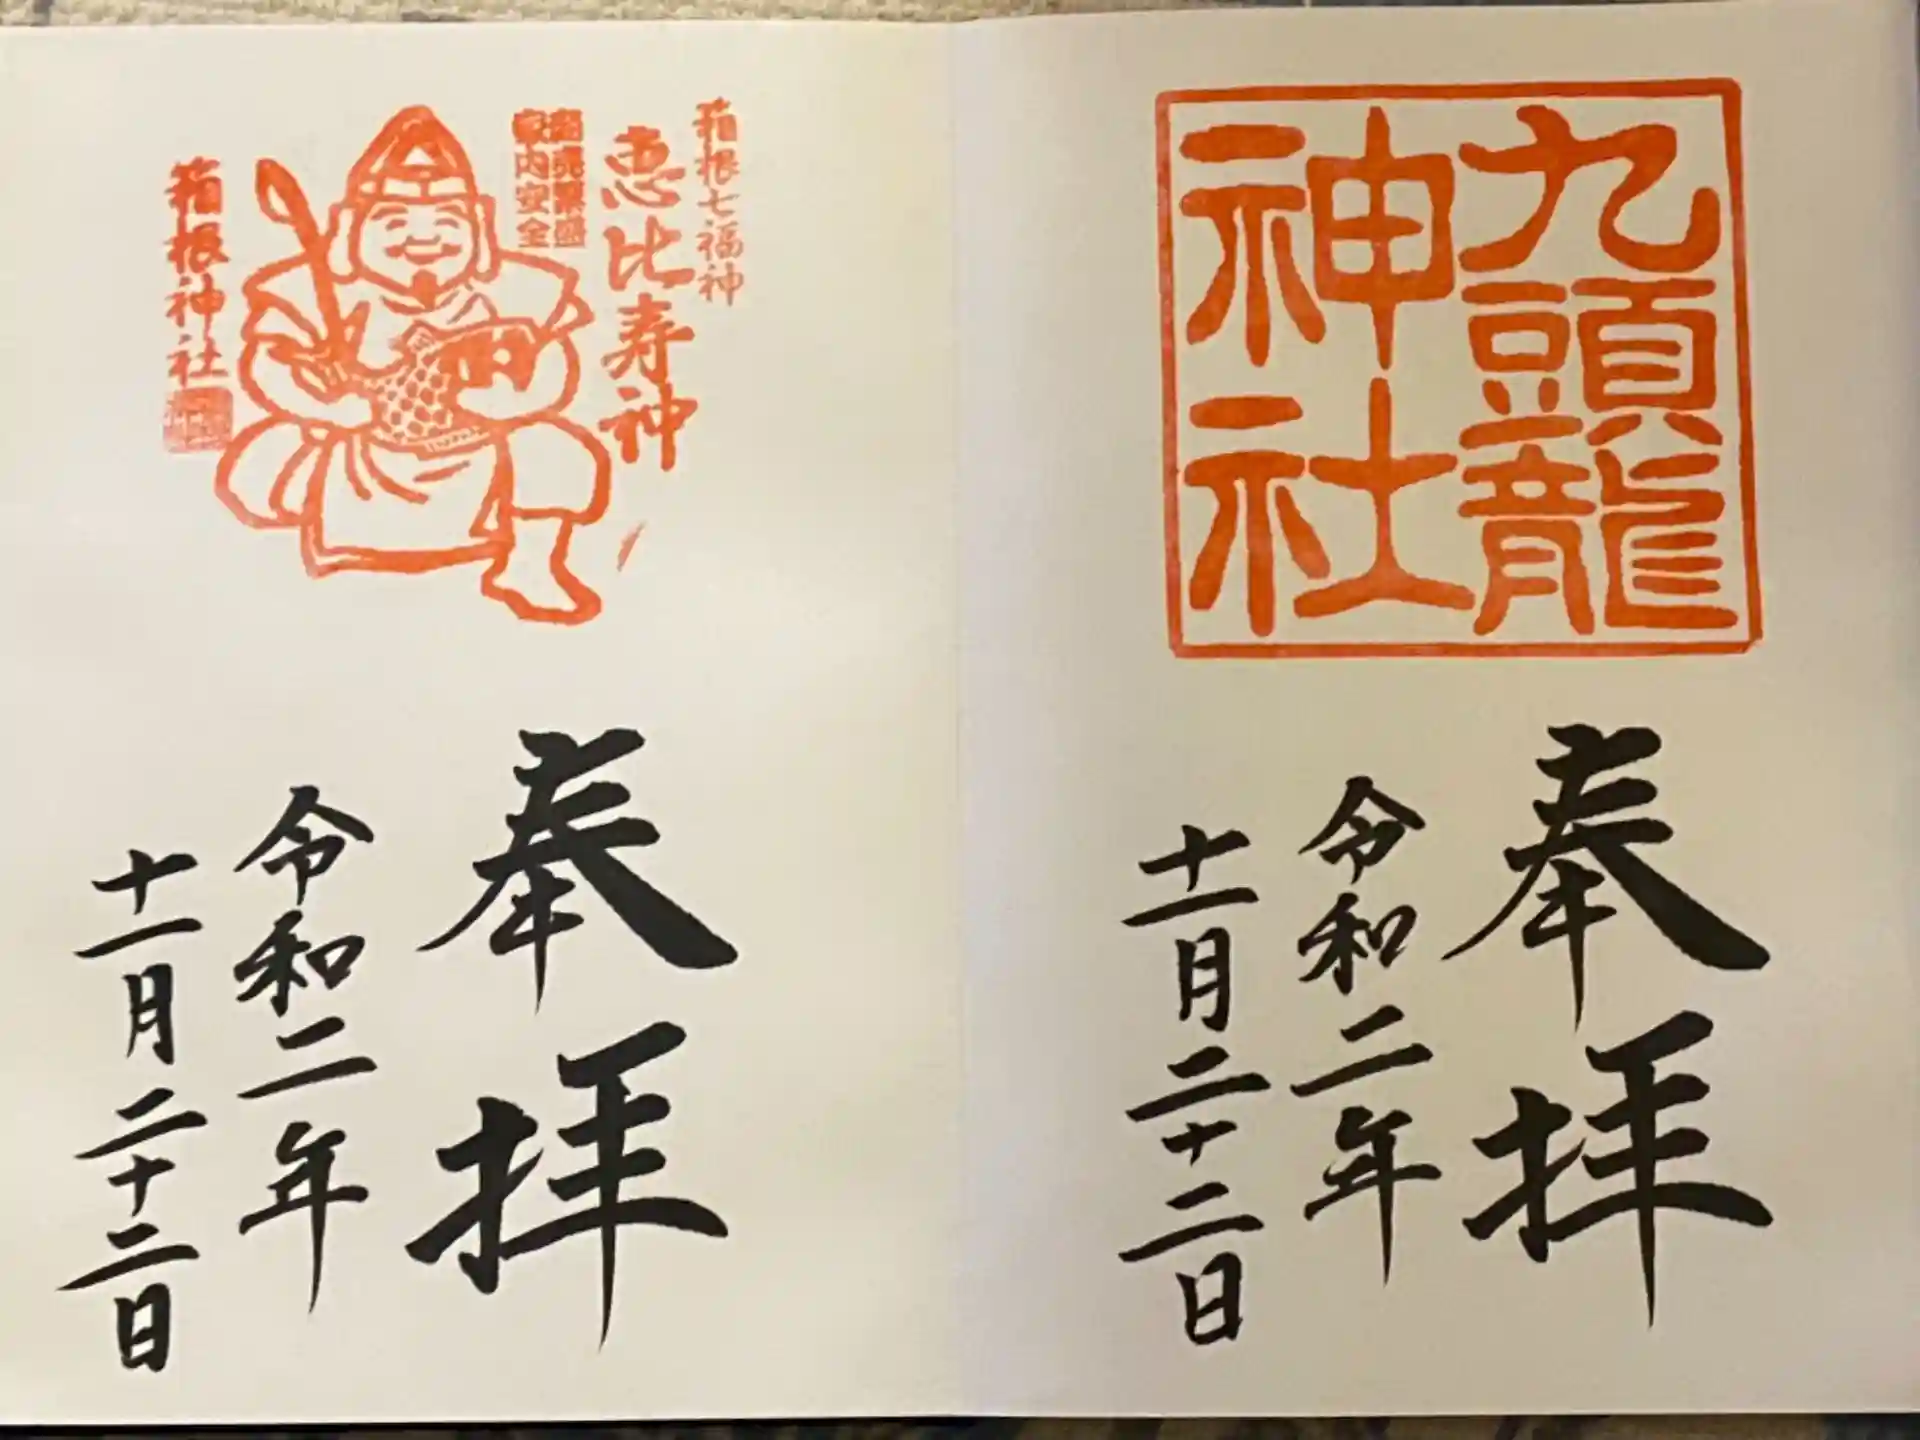 九頭龍
神社
奉拝
令和二年
十一月二十二日
箱根七福神
恵比寿神
商売繁盛
家内安全
箱根神社
奉拝
令和二年
十一月二十二日